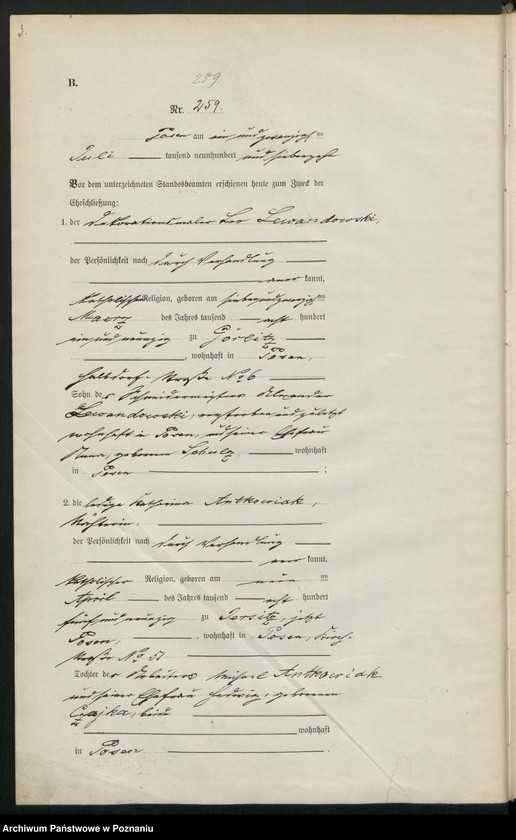 3.
B.
259.
Nr. 259.
Posen am ein und zwanzigsten
Juli tausend neunhundert und siebzehn
Vor dem unterzeichneten Standesbeamten erschienen heute zum Zweck der
Eheschließung:
1. der Dekorationsmaler Leo Lewandowski,
der Persönlichkeit nach durch Verhandlung
aner kannt,
katholischer Religion, geboren am siebenundzwanzigsten
Maerz des Jahres tausend acht hundert
ein und neunzig zu Görlitz
, wohnhaft in Posen,
Straße No 6
Sohn des Schneidermeisters Alexander
Lewandowski, verstorben und zuletzt
wohnhaft in Posen, und seiner Ehefrau
Anna, geborenen Schulz, wohnhaft
in Posen ;
2. die ledige Katharina Antkowiak,
der Persönlichkeit nach durch Verhandlung
aner kannt,
katholischer Religion, geboren am neun ten
April des Jahres tausend acht hundert
fünf und neunzig zu Jersitz, jetzt
Posen, , wohnhaft in Posen, Kirch-
straße No 51
Tochter des Arbeiters Michael Antkowiak
und seiner Ehefrau Hedwig, geborenen
Czajka, beide
wohnhaft
in Posen .
Archiwum Państwowe w Poznaniu